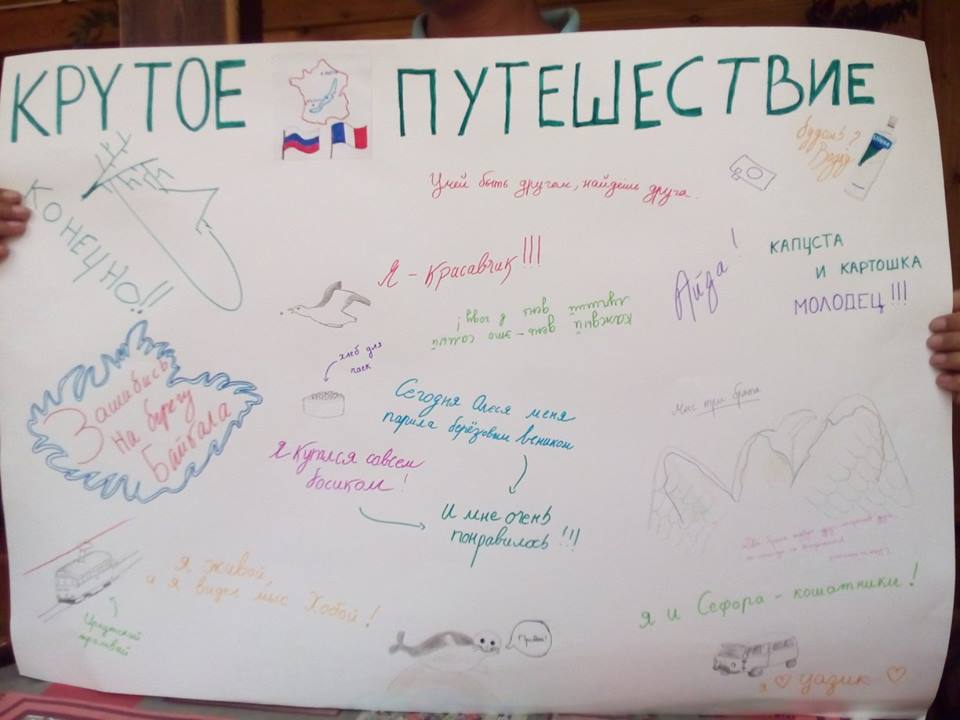 КРУТОЕ ПУТЕШЕСТВИЕ
КОНЕЧНО!!
будешь?
Умей быть другом, найдёшь друга.
Я - Красавчик!!!
Айда!
КАПУСТА
И КАРТОШКА
МОЛОДЕЦ!!!
каждый день - это самый
лучший день в году!
хлеб для
чаек
Зашибись
на берегу
Байкала
Сегодня Олеся меня
парила берёзовым веником
Я купался совсем
босиком!
И мне очень
понравилось!!!
Мыс три брата
я живой,
и я видел мыс Хобой!
Иркутский
трамвай
Привет!
я и Сефора - кошатники!
я ♡ уазик ♡